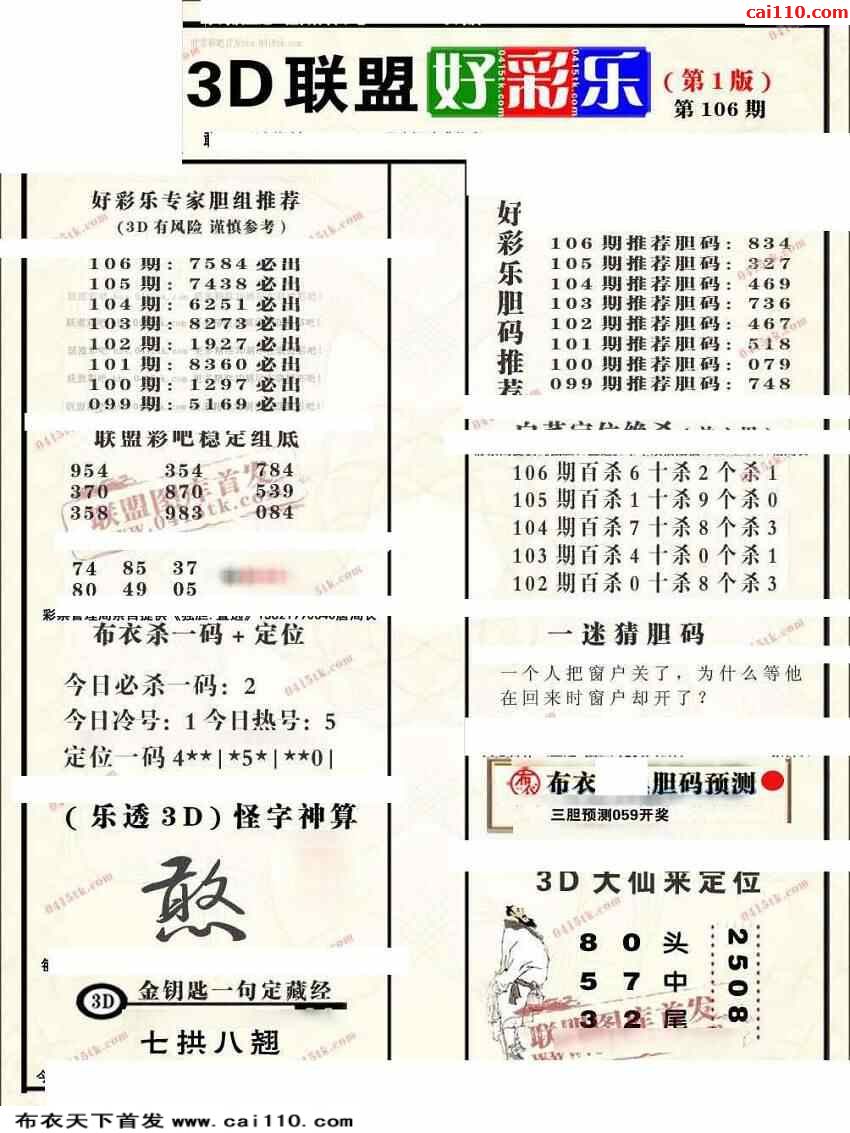 cai110.com
3D联盟好彩乐(第1版)
第106期
好彩乐专家胆组推荐
(3D有风险 谨慎参考)
106期: 7584必出
105期: 7438必出
104期: 6251必出
103期: 8273必出
102期: 1927必出
101期: 8360必出
100期: 1297必出
099期: 5169必出
联盟彩吧稳定组底
954 354 784
370 870 539
358 983 084
联盟图库首发
www.0415tk.com
74 85 37
80 49 05
布衣杀一码+定位
今日必杀一码: 2
今日冷号: 1 今日热号: 5
定位一码 4**|*5*|**0|
(乐透3D)怪字神算
憨
3D 金钥匙一句定藏经
七拱八翘
好彩乐胆码推荐
106期推荐胆码: 834
105期推荐胆码: 327
104期推荐胆码: 469
103期推荐胆码: 736
102期推荐胆码: 467
101期推荐胆码: 518
100期推荐胆码: 079
099期推荐胆码: 748
106期百杀6十杀2个杀1
105期百杀1十杀9个杀0
104期百杀7十杀8个杀3
103期百杀4十杀0个杀1
102期百杀0十杀8个杀3
一迷猜胆码
一个人把窗户关了，为什么等他
在回来时窗户却开了？
布衣 胆码预测
三胆预测059开奖
3D大仙来定位
8 0 头
5 7 中
3 2 尾
2508
联盟图库首发
布衣天下首发 www.cai110.com